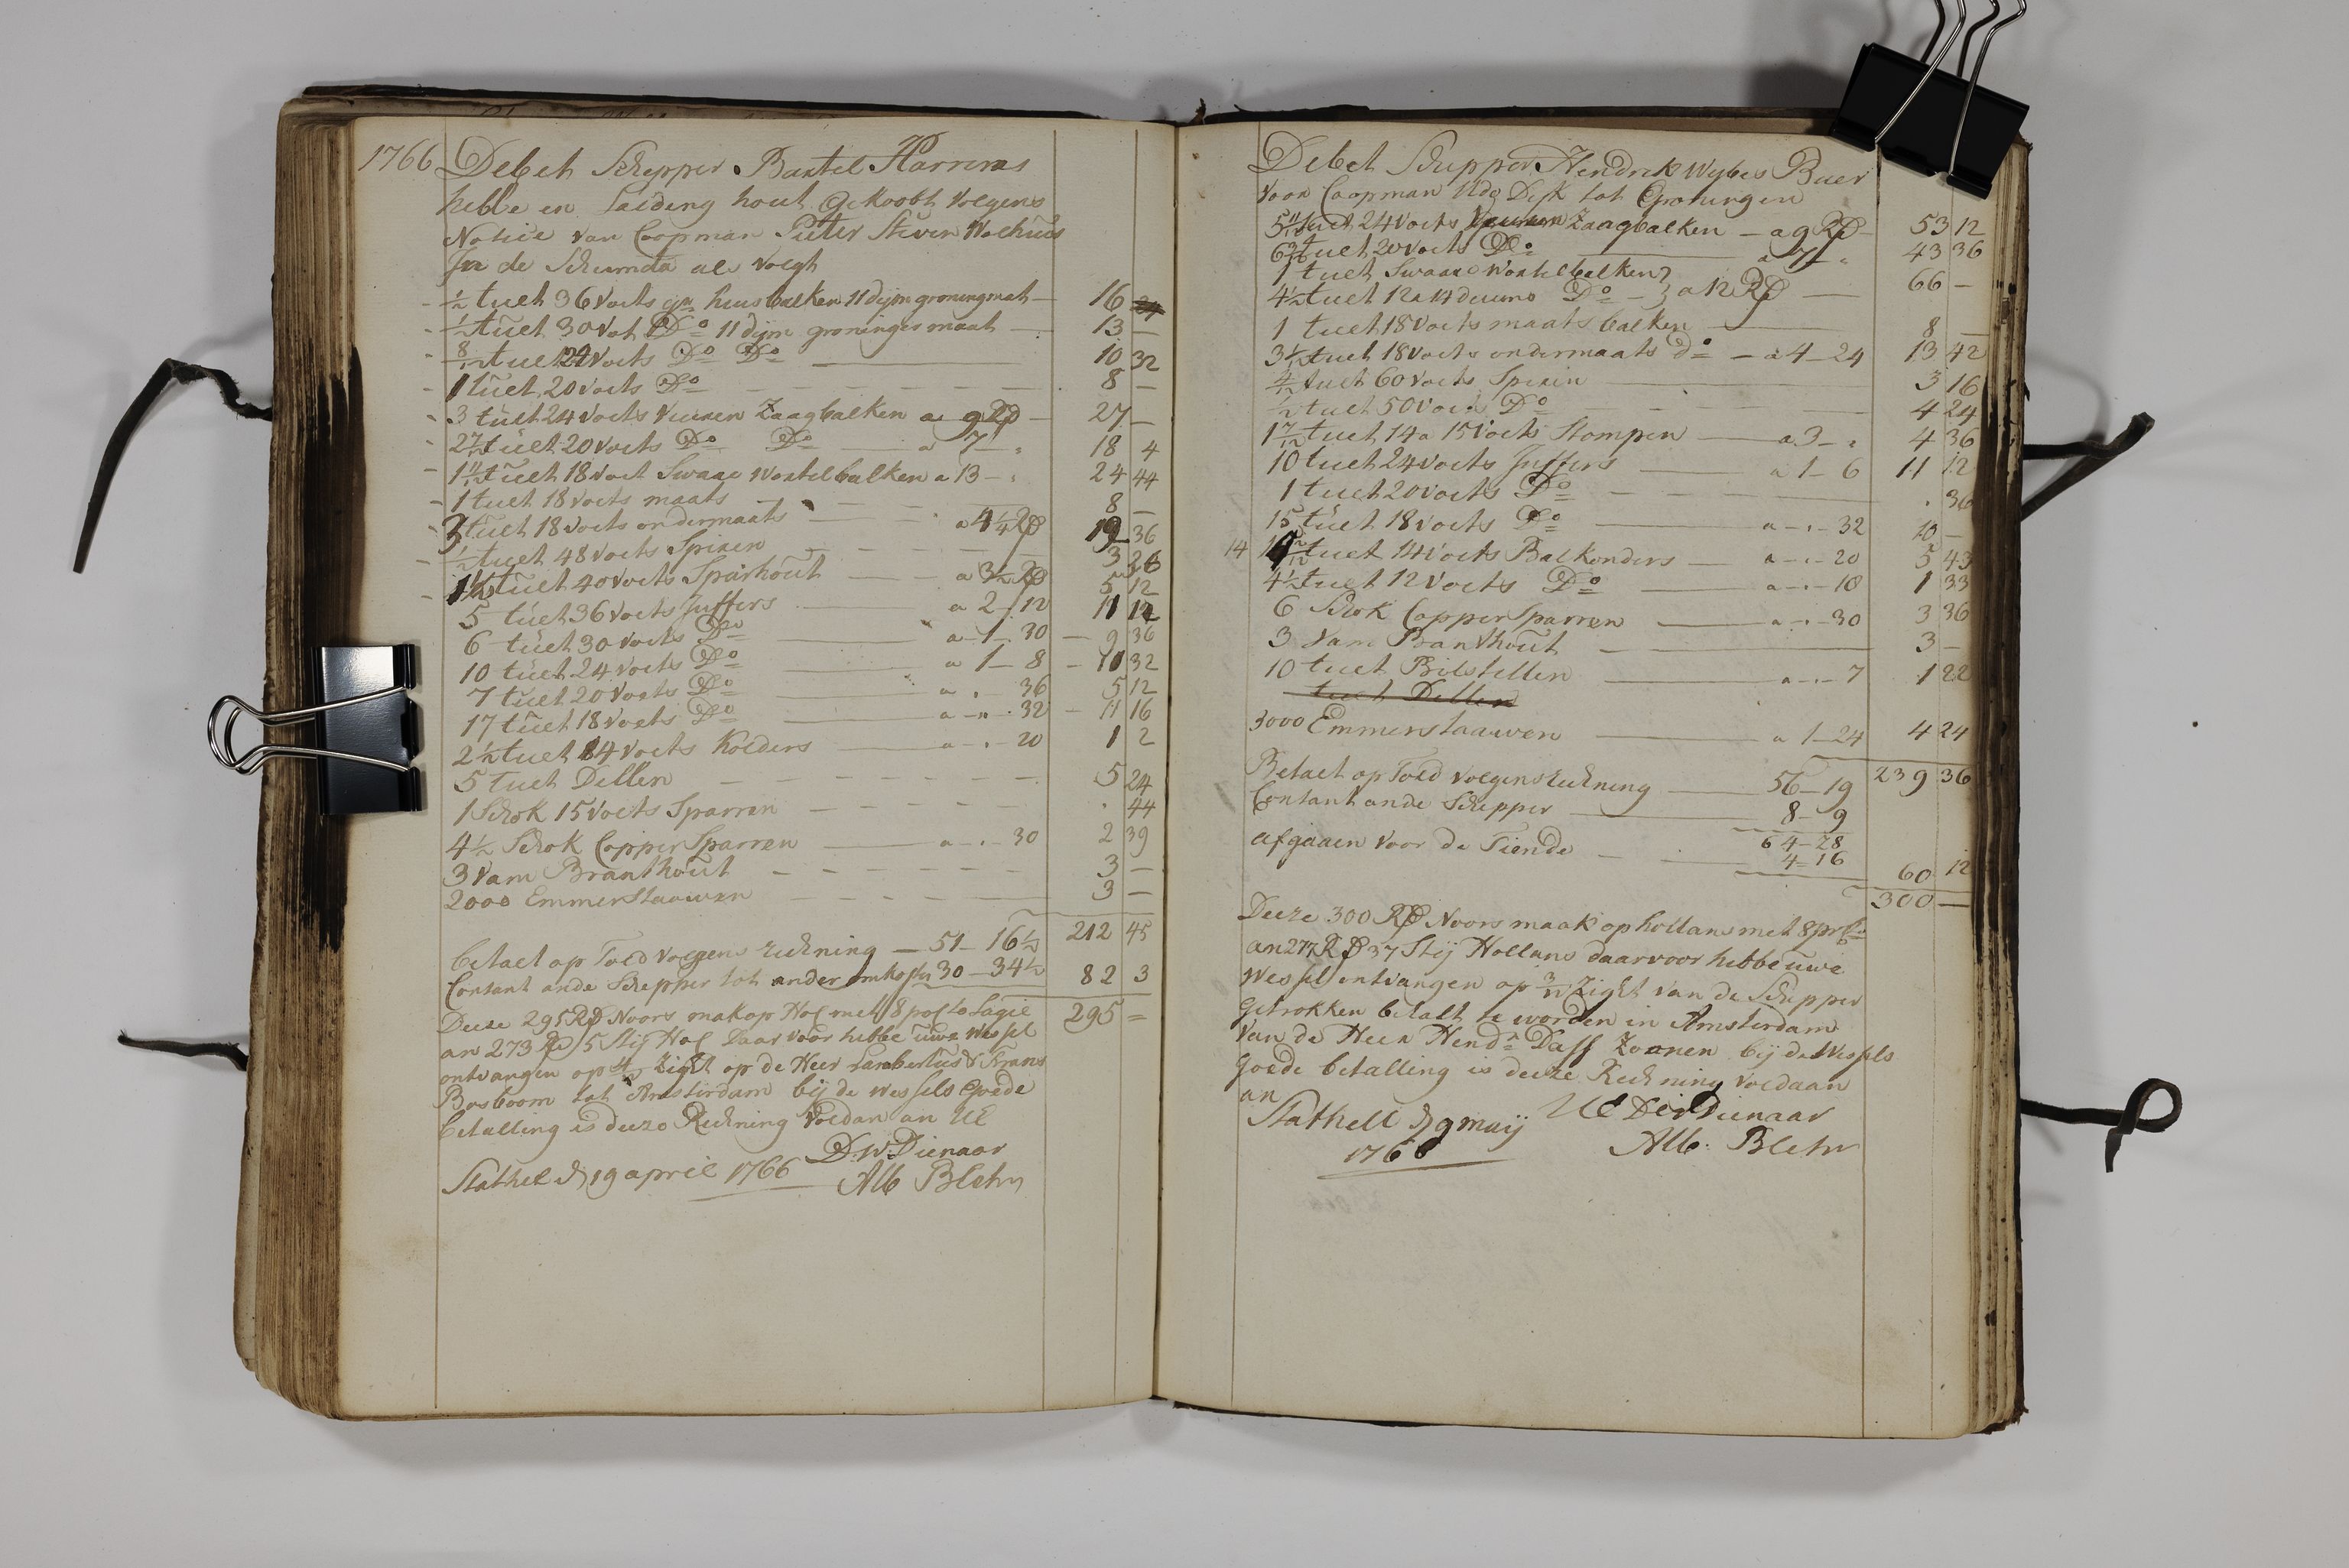 1766 Debet Schipper Bartel Harrems
hebbe en Laeding hout Gekoobt Volgens
Notice van Coopman Pieter Steven Wolhuis
In de Schrimta als volgt
½ tuet 36 Voets gn huusbalken 11 dijm groningmat — 16
½ tuet 30 Vot Do 11 dijm groninges maat — 13 —
8/12 tuet 24 Voets Do Do — 10 32
1 tuet 20 voets Do — 8 —
3 tuet 24 voets Vuuren Zaagbalken a 9 Rd — 27 —
2 7/12 tuet 20 voets Do Do — a 7 — 18 4
1 11/12 tuet 18 voet Swaae Wortelbalken a 13 — 24 44
1 tuet 18 voets maats — 8 —
3 tuet 18 voets ondermaats — a 4¼ Rd 12 36
½ tuet 48 voets Spieren — 3 36
1½ tuet 40 voets Sparhout — a 3½ Rd 5 12
5 tuet 36 voets Juffers — a 2 / 12 11 12
6 tuet 30 voets Do — a 1 — 30 — 9 36
10 tuet 24 voets Do — a 1 — 8 — 10 32
7 tuet 20 Voets Do — a . — 36 5 12
17 tuet 18 Voets Do — a — 32 — 11 16
2½ tuet 14 voets Kolders — a — 20 1 2
5 tuet Dellen — 5 24
1 Schok 15 Voets Sparren — . 44
4½ Schok Copper Sparren — a . — 30 2 39
3 Vam Branthout — 3 —
2000 Emmerstaawen — 3 —
212 45
betaet op Toed Volgens rickning — 51 — 16½
Contant ande Schepper tot ander omkosten 30 — 34½ 82 3
Deeze 295 Rd Noors mak op Hol met 8 pos to Lagie 295 =
an 273 Rd 5 Stij Hol Daar voor hebbe uwe Wessel
ontvangen op 4/m Zigt op de Heer Lambertus & Frans
Bosboom tot Amsterdam bij de wessels Goede
betalling is deeze Rickning Voldan an UE
D:W: Dienaar
Stathel d 19 april 1766 Alb Blehr
Debet Schipper Hendrik Wybes Buer
Voor Coopman Udo Dijk tot Groningen
5 11/12 tuet 24 Voets Vuuren Zaagbalken — a 9 Rd — 53 12
6 3/12 tuet 20 voets Do — a 7 — 43 36
1 tuet Swaae Wortelbalken
4½ tuet 12 a 14 duums Do — a 12 Rd — 66 —
1 tuet 18 Voets maats balken — 8 —
3 1/12 tuet 18 Voets ondermaats do — a 4 — 24 13 42
4/12 tuet 60 voets Spiren — 3 16
½ tuet 50 voets Do — 4 24
1 7/12 tuet 14 a 15 Voets Stompen — a 3 — 4 36
10 tuet 24 Voets Juffers — a 1 — 6 11 12
1 tuet 20 voets Do — . 36
15 tuet 18 Voets Do — a — . — 32 10 —
14 tuet 14 Voets Balkonders — a — . — 20 5 43
4½ tuet 12 Voets Do — a — . — 18 1 33
6 Schok Copper Sparren — a — . — 30 3 36
3 Vam Branthout — 3 —
10 tuet Bilstellen — a — . — 7 1 22
tuet Dellen
3000 Emmerstaauwen — a 1 — 24 4 24
239 36
Betaet op Toed volgens rickning — 56 — 19
Contant ande Schepper — 8 — 9
64 — 28
afgaaen Voor de Tiende — 4 — 16
60 12
300 —
Deeze 300 Rd Noors maak op hollans met 8 pr Co
an 277 Rd 37 Stij Hollans daarvoor hebbe uwe
Wessel ontvangen op 3/m Zigt van de Schipper
Getrokken betalt te worden in Amsterdam
Van de Heer Hendk Daff Zoonen bij de Wessels
Goede betalling is deeze Rickning Voldaan
an
UE Dw Dienaar
Stathell d 9 maij
1766 Alb: Blehr